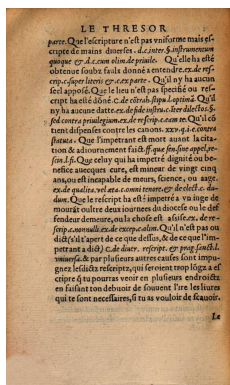 LE THRESOR
parte. Que l'escripture n'est pas vniforme mais es-
cripte de mains diuerses .d.c.inter.§.instrumentum
quoque & .d.c.cum olim de priuile. Qu'elle ha esté
obtenue soubz faulx donné a entendre.ex.de ref-
crip.c.super literis & .c.ex parte. Qu'il n'y ha aucun
seel apposé. Que le lieu n'est pas specifié ou ref-
cript ha esté dõné.
n'y ha aucune datte.
sed contra priuilegium.ex.de rescrip.c.eam te. Qu'il cõ
tient dispenses contre les canons. xxv.q.i.c.contra
statuta. Que l'impetrant est mort auant la cita-
tion & adiournement faict.
Que celuy qui ha impetré dignité ou be-
nefice auecques cure, est mineur de vingt cinq
ans, ou est incapable de meurs, science, ou aage.
ex.de qualita.
dum. Que le rescript ha esté impetré a vn iuge de
mourãt oultre deux iournees du diocese ou le def-
fendeur demeure, ou la chose est assise.ex.de re-
scrip.c.nonnulli.ex.de except. Qu'il n'est pas ou
dict s'il apert de ce que dessus, & de ce que l'im-
petrant a dict)
vniuersa. & par plusieurs autres causes sont impu-
gnez lesdictz rescriptz, qui seroient trop lõgz a es
cripre q̃ tu pourras veoir en plusieurs endroictz
en faisant ton debuoir de souuent lire les liures
qui te sont necessaires, si tu as vouloir de scauoir.
Le